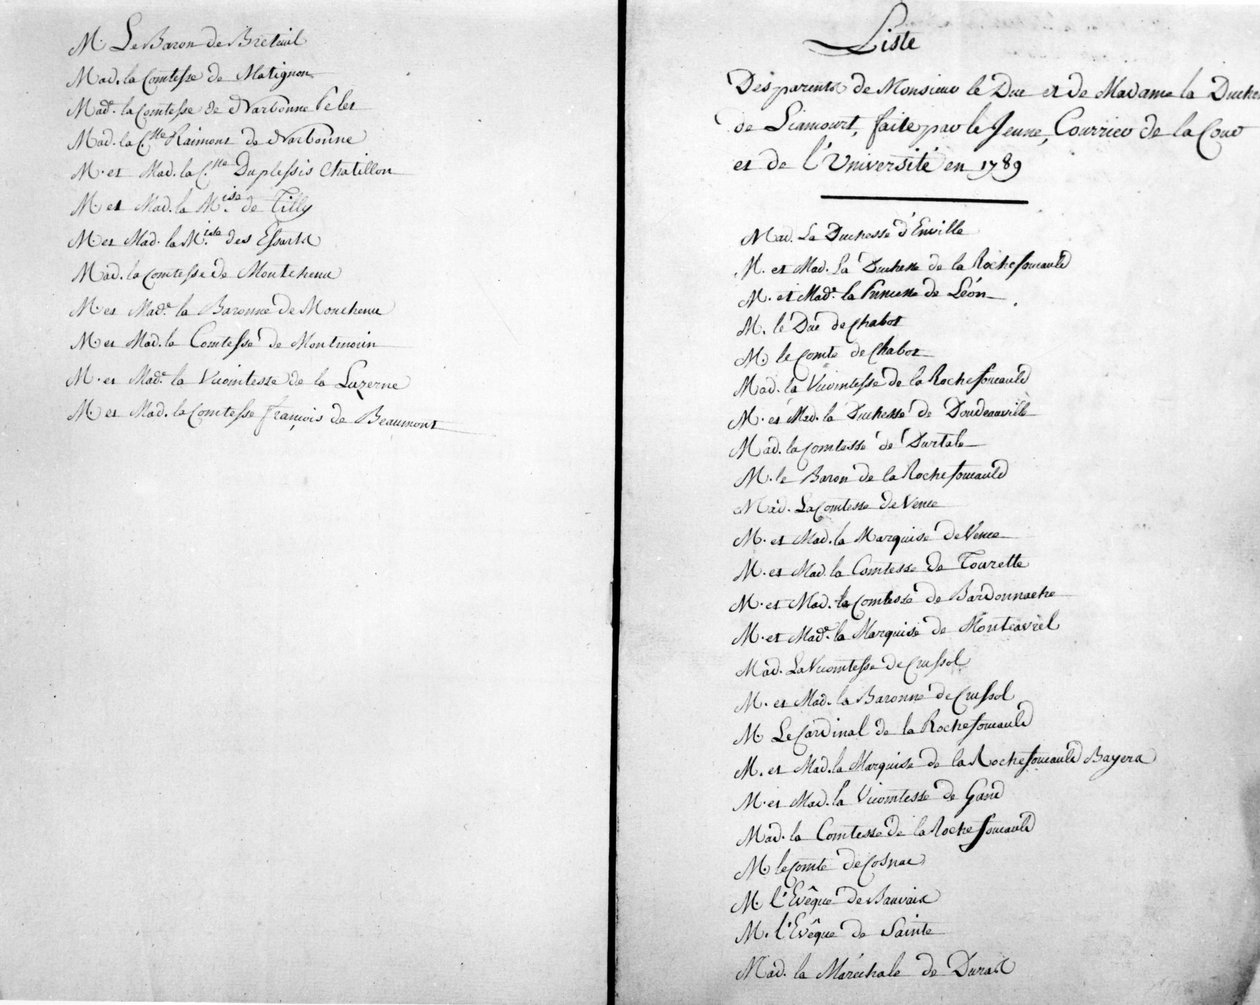 M. Le Baron de Breteuil
Mad. la Comtesse de Matignon
Made. la Comtesse de Narbonne Pelet
Mad. la Ctte Raimont de Narbonne
M. et Mad. la Ctte Duplessis Chatillon
M. et Mad. la Mise de Tilly
M et Mad. la Mise des Essarts
Mad. la Comtesse de Montchenu
M et Made. la Baronne de Monchenu
M. et Mad. la Comtesse de Montmorin
M. et Made. la Vicomtesse de la Luzerne
M. et Mad. la Comtesse françois de Beaumont
Liste
Des parents de Monsieur le Duc et de Madame la Duchesse
de Liancourt, faite par le Jeune, Courrier de la Cour
et de l'Université en 1789
Mad. La Duchesse d'Enville
M. et Mad. La Duchesse de la Rochefoucauld
M. et Made. la Princesse de Léon
M. le Duc de Chabot
M. le Comte de Chabot
Mad. la Vicomtesse de la Rochefoucauld
M. et Mad. la Duchesse de Doudeauville
Mad. la Comtesse de Durtale
M. le Baron de la Rochefoucauld
Mad. La Comtesse de Vence
M. et Mad. la Marquise de Vence
M. et Mad. la Comtesse de Tourette
M. et Mad. la Comtesse de Bardonnache
M. et Made. la Marquise de Monteavrel
Mad. La Vicomtesse de Crussol
M. et Mad. la Baronne de Crussol
M. Le Cardinal de la Rochefoucauld
M. et Mad. la Marquise de la Rochefoucauld Bayers
M. et Mad. la Vicomtesse de Gand
Mad. la Comtesse de la Rochefoucauld
M. le Comte de Cosnac
M. l'Evêque de Bauvais
M. l'Evêque de Sainte
Mad. la Maréchale de Duras